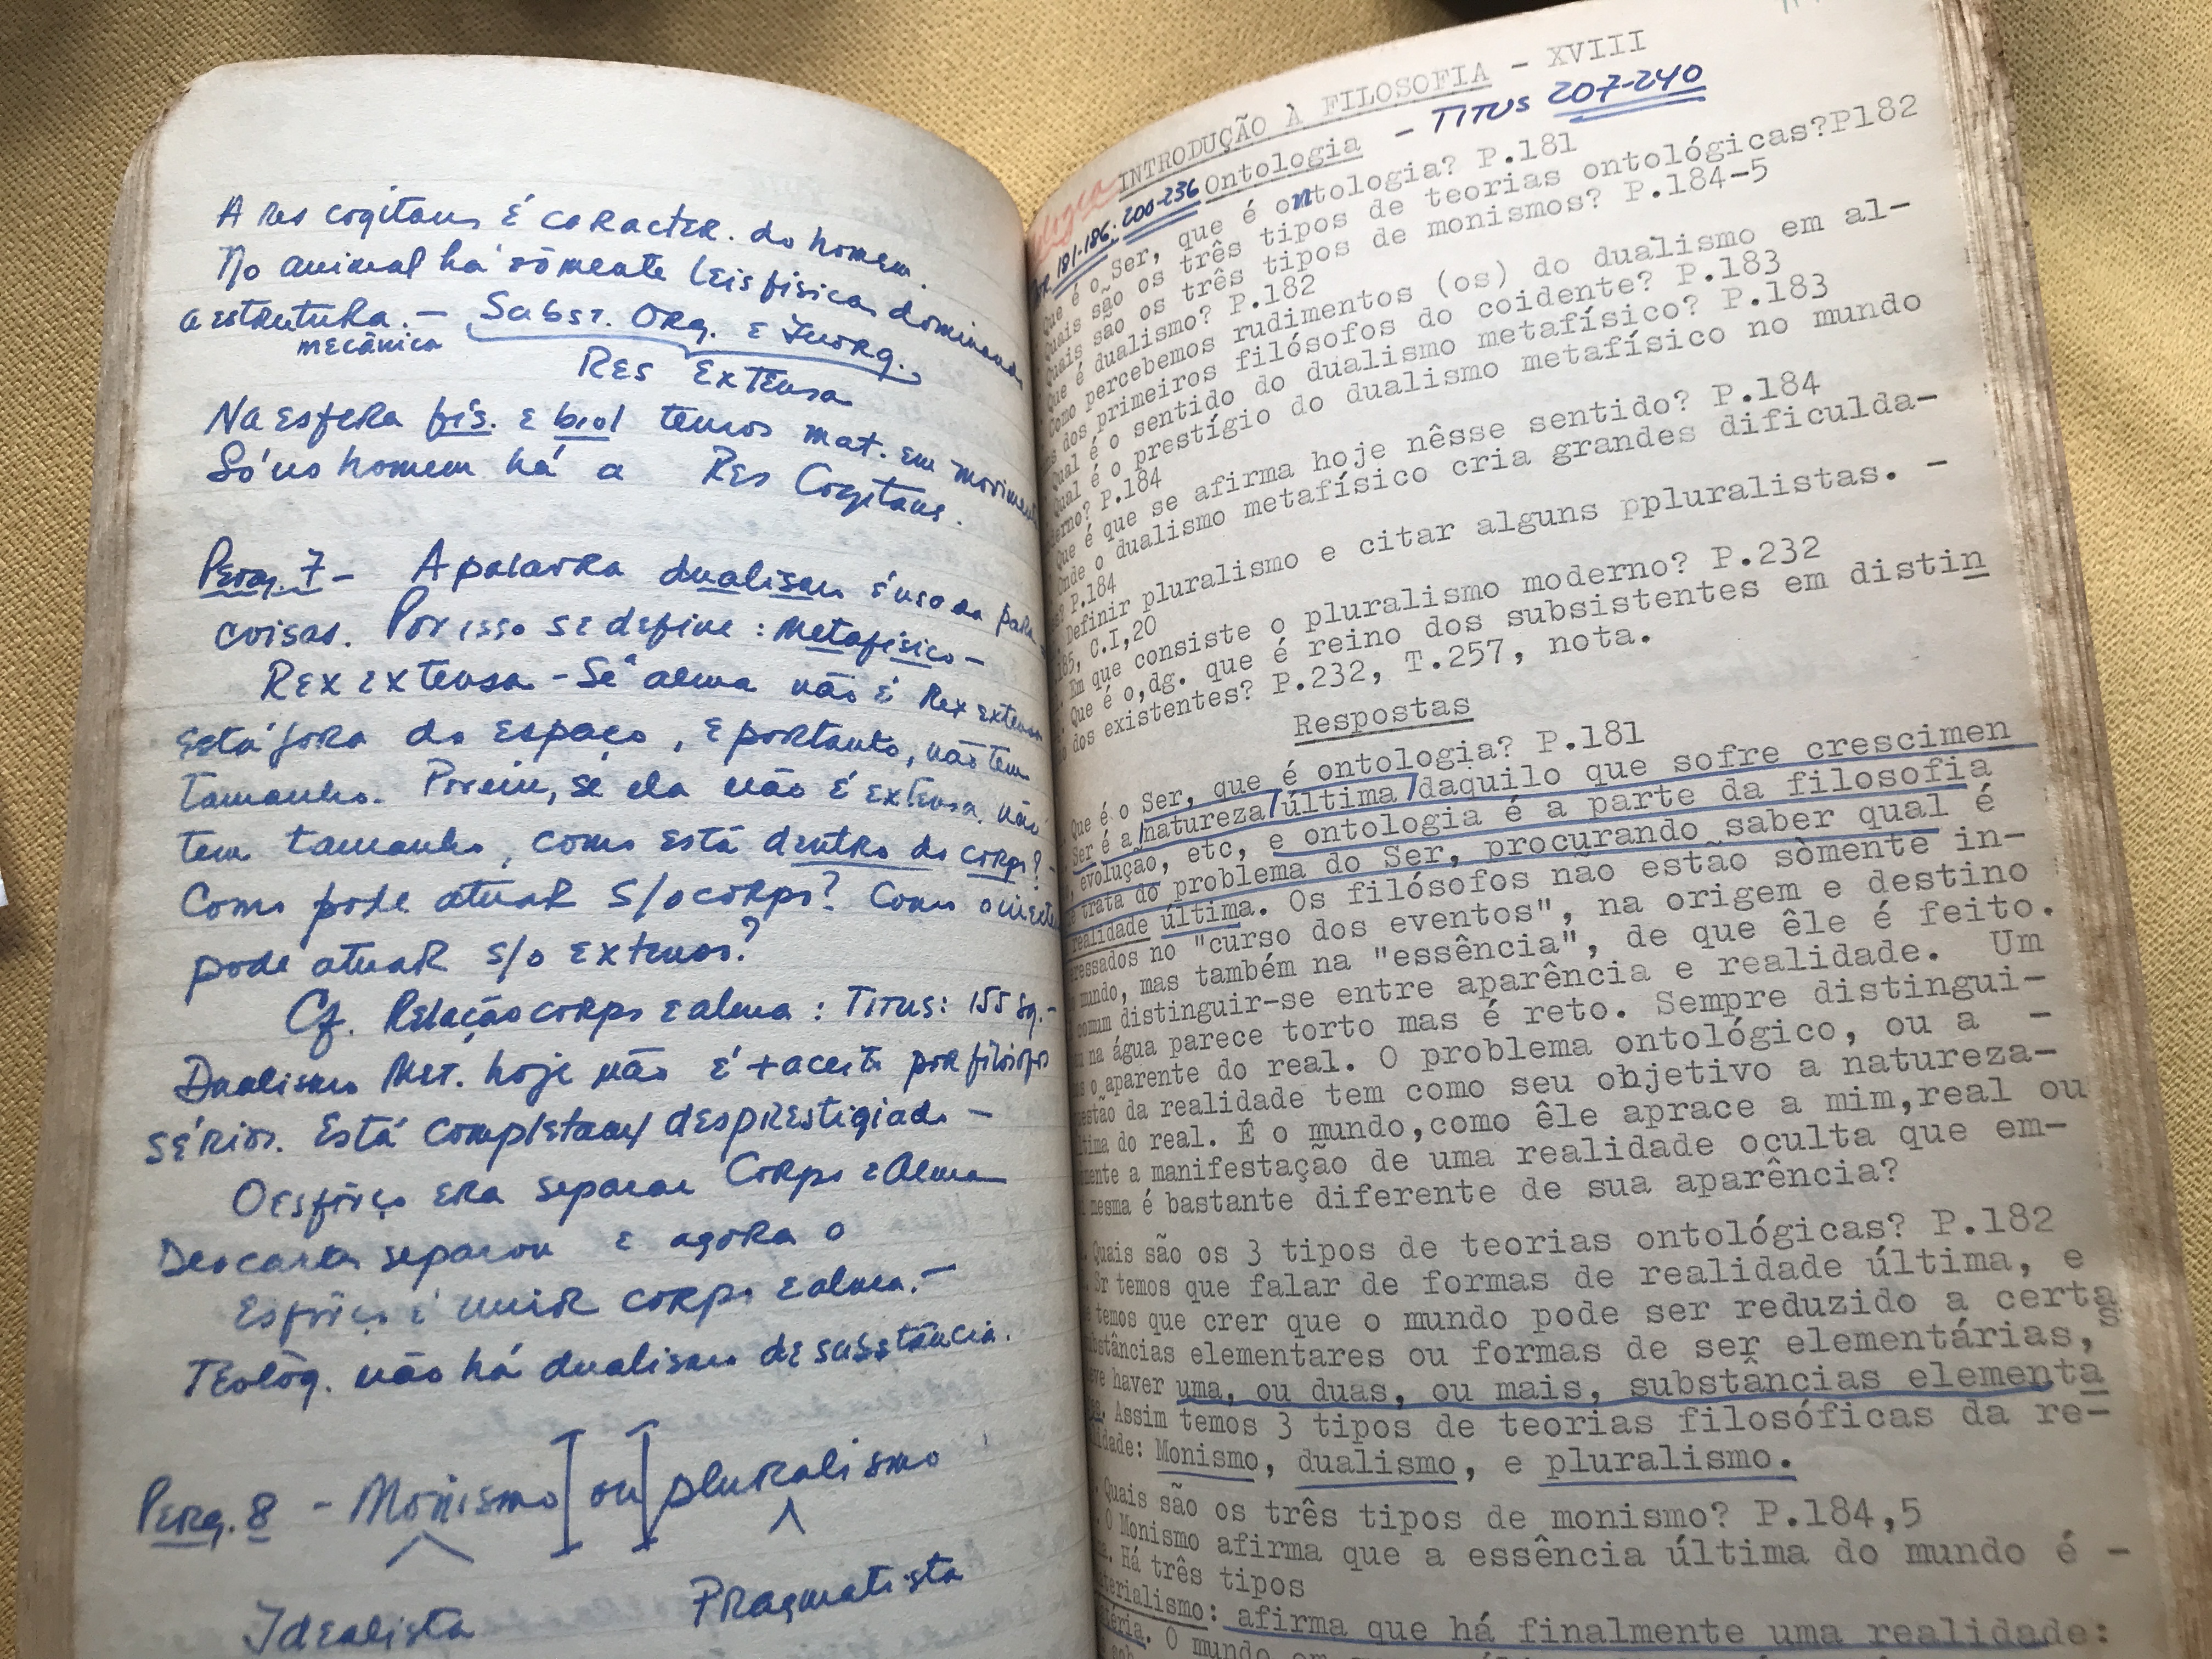 A Res cogitans é caracter. do homem.
No animal há sòmente leis físicas dominando
a estrutura. — Subst. Org. e Inorg.
mecânica
Res Extensa
Na esfera fís. e biol temos mat. em movimento
Só no homem há a Res Cogitans.
Perg. 7 - A palavra dualismo é usada para
coisas. Por isso se define: metafísico —
Rex extensa - Se alma não é Rex extensa
está fora do espaço, e portanto, não tem
tamanho. Porém, se ela não é extensa, não
tem tamanho, como está dentro do corpo? -
Como pode atuar s/o corpo? Como o
pode atuar s/o extenso?
Cf. Relação corpo e alma: Titus: 155 sq. -
Dualismo Met. hoje não é + aceito por filósofos
sérios. Está completam/ desprestigiado —
O esfôrço era separar Corpo e Alma
Descartes separou e agora o
Esfôrço é unir corpo e alma. —
Teològ. não há dualismo de substância.
Perg. 8 - Monismo ou pluralismo
Idealista Pragmatista
INTRODUÇÃO À FILOSOFIA - XVIII
- TITUS 207-240
181-186; 200-236 Ontologia
Que é o Ser, que é ontologia? P.181
Quais são os três tipos de teorias ontológicas?P182
Quais são os três tipos de monismos? P.184-5
Que é dualismo? P.182
Como percebemos rudimentos (os) do dualismo em al-
dos primeiros filósofos do coidente? P.183
Qual é o sentido do dualismo metafísico? P.183
Qual é o prestígio do dualismo metafísico no mundo
erno? P.184
Que é que se afirma hoje nêsse sentido? P.184
Onde o dualismo metafísico cria grandes dificulda-
P.184
Definir pluralismo e citar alguns ppluralistas. -
185, C.I,20
Em que consiste o pluralismo moderno? P.232
Que é o,dg. que é reino dos subsistentes em distin
dos existentes? P.232, T.257, nota.
Respostas
Que é o Ser, que é ontologia? P.181
Ser é a natureza última daquilo que sofre crescimen
, evolução, etc, e ontologia é a parte da filosofia
trata do problema do Ser, procurando saber qual é
realidade última. Os filósofos não estão sòmente in-
ressados no "curso dos eventos", na origem e destino
mundo, mas também na "essência", de que êle é feito.
comum distinguir-se entre aparência e realidade. Um
na água parece torto mas é reto. Sempre distingui-
o aparente do real. O problema ontológico, ou a -
estão da realidade tem como seu objetivo a natureza-
tima do real. É o mundo,como êle aprace a mim,real ou
mente a manifestação de uma realidade oculta que em-
mesma é bastante diferente de sua aparência?
Quais são os 3 tipos de teorias ontológicas? P.182
Sr temos que falar de formas de realidade última, e
temos que crer que o mundo pode ser reduzido a certas
bstâncias elementares ou formas de ser elementárias,
ve haver uma, ou duas, ou mais, substâncias elementa
as. Assim temos 3 tipos de teorias filosóficas da re-
lidade: Monismo, dualismo, e pluralismo.
Quais são os três tipos de monismo? P.184,5
O Monismo afirma que a essência última do mundo é -
a. Há três tipos
aterialismo: afirma que há finalmente uma realidade:
téria. O mundo